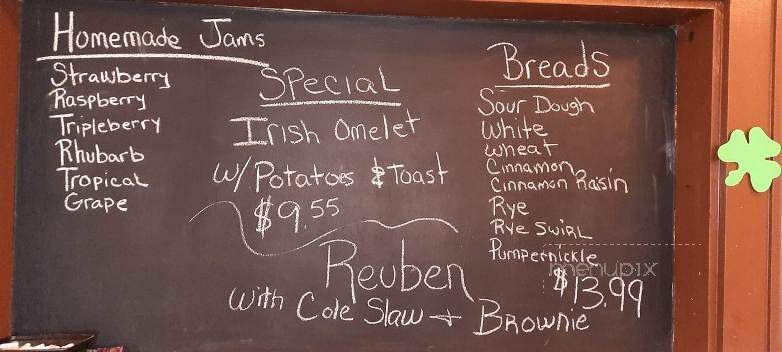 Homemade Jams
Strawberry
Raspberry
Tripleberry
Rhubarb
Tropical
Grape
Special
Irish Omelet
w/ Potatoes & Toast
$9.55
Breads
Sour Dough
White
Wheat
Cinnamon
Cinnamon Raisin
Rye
Rye Swirl
Pumpernickle
Reuben
With Cole Slaw + Brownie
$13.99
menupix